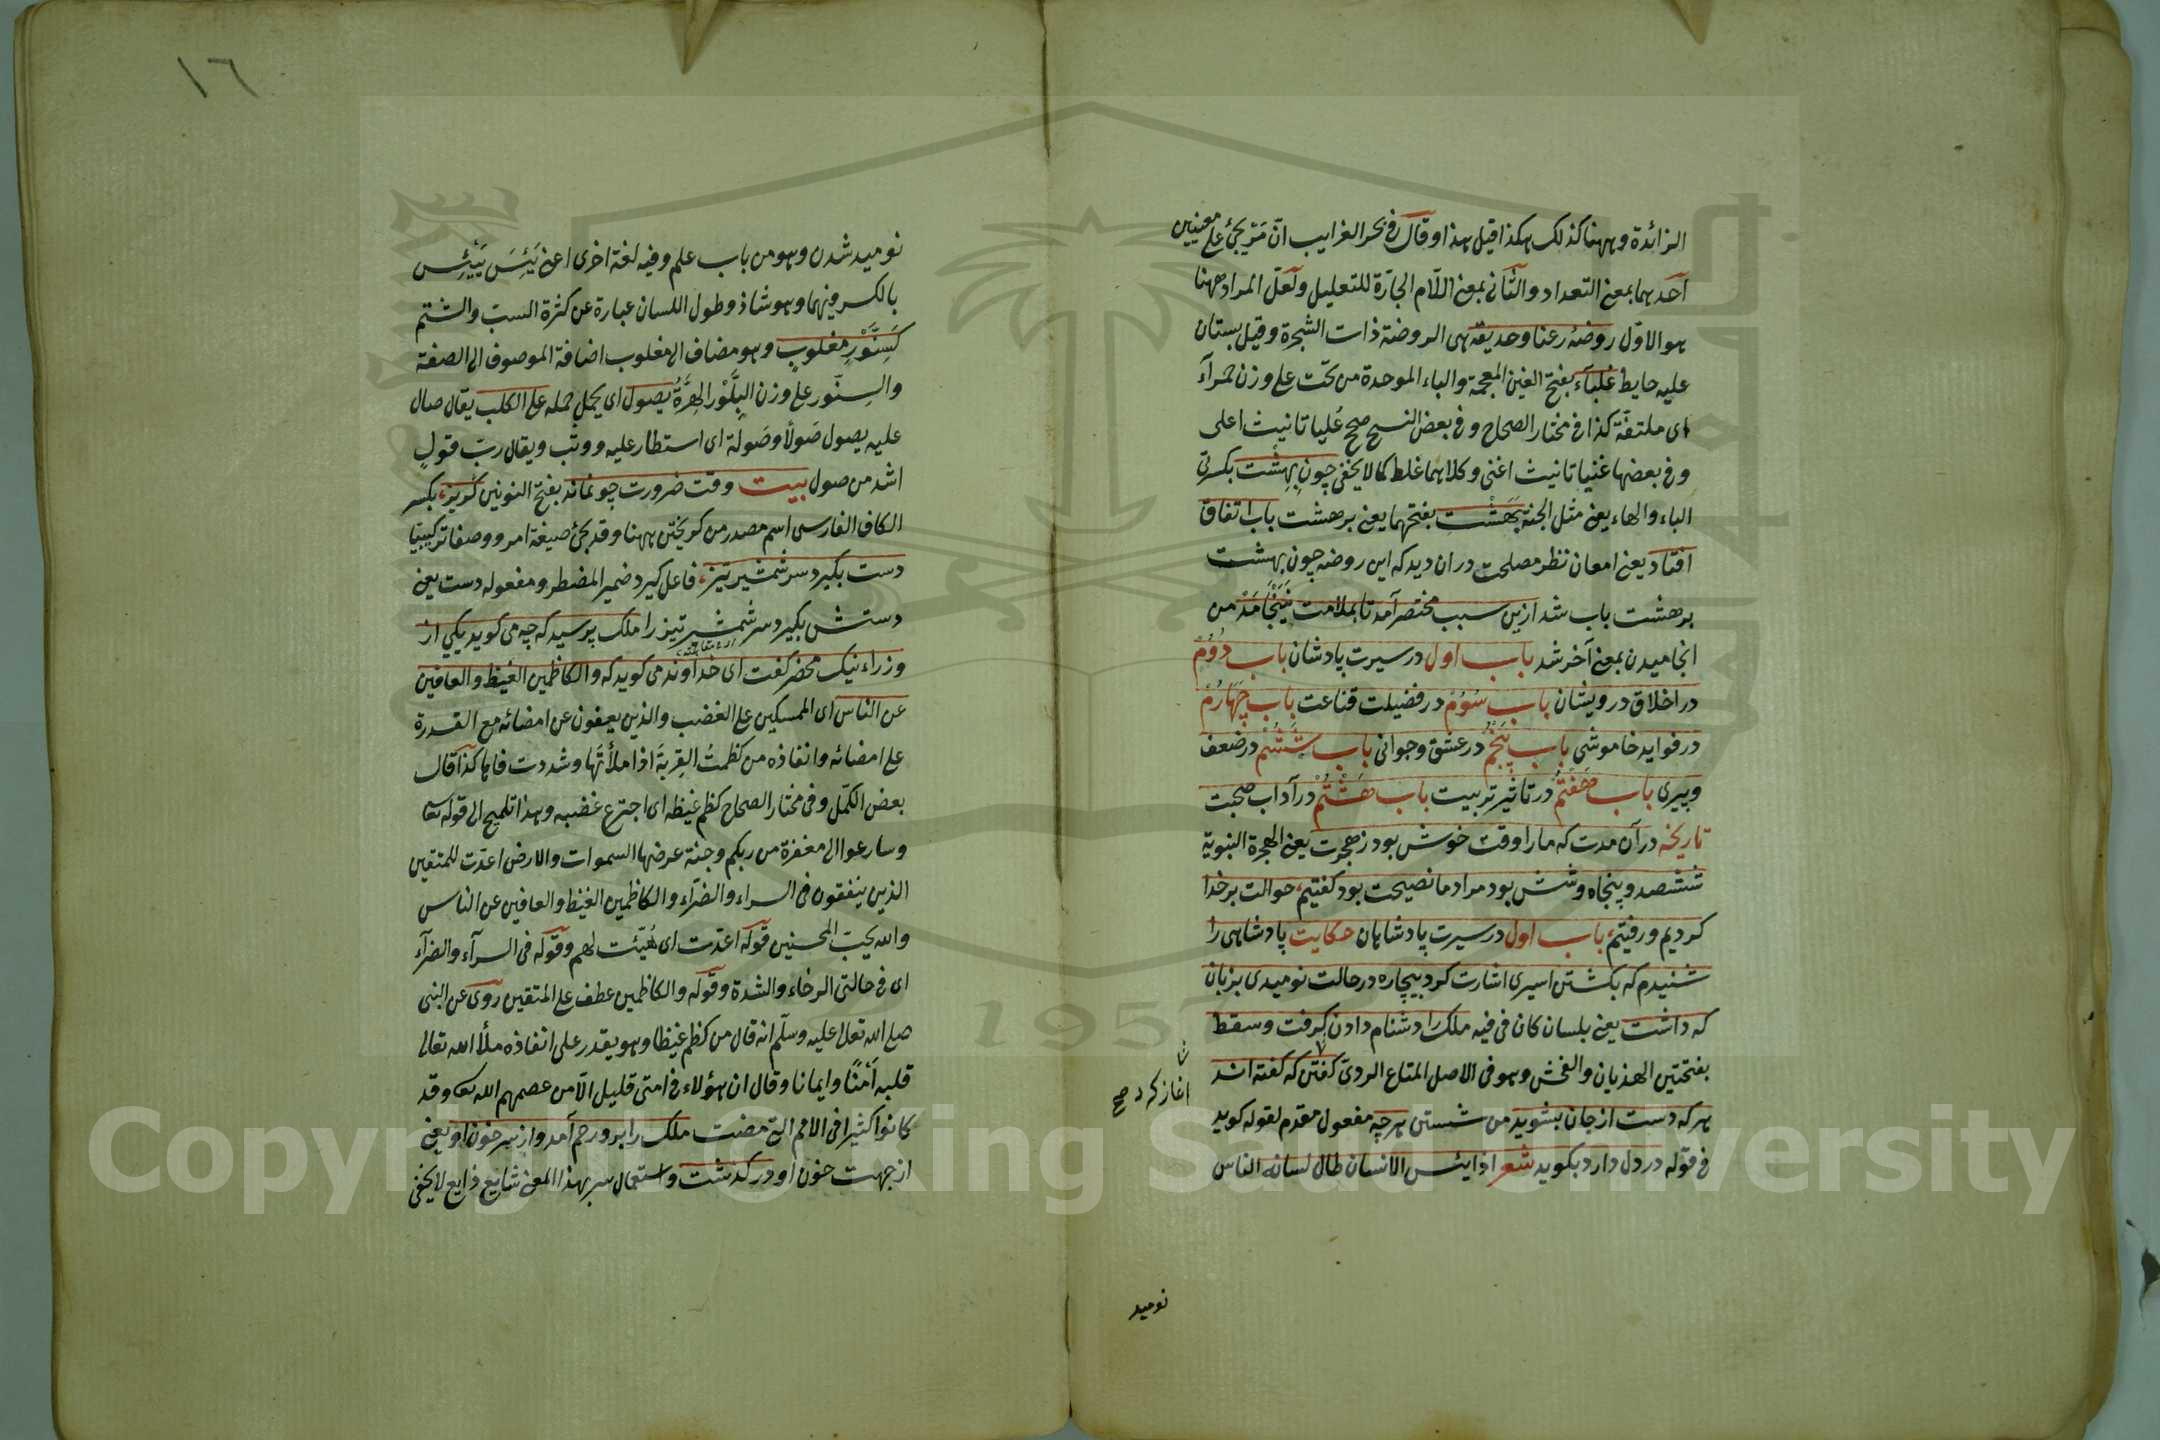 الزائدة وههنا كذلك هكذا قيل هذا وقال فى بحر الغرايب انّ مَر يجئ على معنيين
آحدهما بمعنى التعداد والثانى بمعنى اللّام الجارّة للتعليل ولعلّ المراد ههنا
هو الاوّل روضهٔ رعنا وحديقه هى الروضة ذات الشجرة وقيل بستان
عليه حايط غلباء بفتح الغين المعجمة والباء الموحدة من تحت على وزن حمرآء
اى ملتفّة كذا فى مختار الصحاح وفى بعض النسخ صح عُليا تانيث اعلى
وفى بعضها غنيا تانيث اغنى وكلاهما غلط كما لا يخفى چون بِهِشت بكسرتى
الباء والهاء يعنى مثل الجنة بَهَشت بفتحهما يعنى بر هشت باب اتفاق
افتاد يعنى امعان نظر مصلحت دران ديد كه اين روضه چون بهشت
بر هشت باب شد ازين سبب مختصر آمد تا بملامت نينجامد من
انجاميدن بمعنى آخر شد باب اول در سيرت پادشان باب دُوُمْ
در اخلاق درويشان باب سُوُمْ در فضيلت قناعت باب چَهَارُمْ
در فوايد خاموشى باب پَنْجُمْ در عشق وجوانى باب شَشُمْ در ضعف
وپيرى باب هَفْتُمْ در تاثير تربيت باب هَشْتُمْ در آداب صحبت
تاريخه در آن مدت كه ما را وقت خوش بود ز هجرت يعنى الهجرة النبوية
ششصد و پنجاه و شش بود مراد ما نصيحت بود گفتيم، حوالت بر خدا
كرديم ورفتيم، باب اول در سيرت پادشاهان حكايت پادشاهى را
شنيدم كه بكشتن اسيرى اشارت كرد بيچاره در حالت نوميدى بزبان
كه داشت يعنى بلسان كان فى فيه ملك را دشنام دادن گرفت وسقط
بفتحتين الهذيان والفحش وهو فى الاصل المتاع الردىّ گفتن كه گفته اند
اغاز كرد صح
هر كه دست از جان بشويد من شستن هرچه مفعول مقدم لقوله كويد
فى قوله در دل دارد بكويد شعر اذا يئس الانسان طال لسانه الناس
نوميد
١٦
نوميد شدن وهو من باب علم وفيه لغة اخرى اعنى يَئِسَ يَيْئِس
بالكسر فيهما وهو شاذ وطول اللسان عبارة عن كثرة السبّ والشتم
كَسِنَّوْرٍ مغلوبٍ وهو مضاف الى مغلوب اضافة الموصوف الى الصفة
والسِنَّور على وزن البِلَّوْر الهِرَّةُ يصول اى يحمل حمله على الكلب يقال صال
عليه يصول صَولًا وصَولَة اى استطار عليه ووثب ويقال ربّ قولٍ
اشد من صول بيت وقت ضرورت چو نماند بفتح النونين گريز، بكسر
الكاف الفارسى اسم مصدر من كريختن ههنا وقد يجئ صيغة امر ووصفا تركيبيّا
دست بگيرد سر شمشير تيز، فاعل كيرد ضمير المضطر ومفعوله دست يعنى
دستش بكيرد سر شمشير تيز را ملك پرسيد كه چه مى كويد يكى از
وزراء نيك محضر گفت اى خداوند مى كويد كه والكاظمين الغيظ والعافين
عن الناس اى الممسكين على الغضب والذين يعفون عن امضائه مع القدرة
على امضائه وانفاذه من كظمتُ القِربةَ اذا ملأتَها وشددت فاها كذا قال
بعض الكمّل وفى مختار الصحاح كظم غيظه اى اجترع غضبه وهذا تلميح الى قوله تعا
وسارعوا الى مغفرة من ربكم وجنة عرضها السموات والارض اعدّت للمتقين
الذين ينفقون فى السراء والضرّاء والكاظمين الغيظ والعافين عن الناس
والله يحبّ المحسنين قوله اعدّت اى هُيّئت لهم وقوله فى السرآء والضرآء
اى فى حالتى الرخاء والشدة وقوله والكاظمين عطف على المتقين روى عن النبى
صلى الله تعالى عليه وسلّم انه قال من كظم غيظا وهو يقدر على انفاذه ملأ الله تعالى
قلبه اَمْنًا وايمانا وقال ان هؤلاء فى امتى قليل الّا من عصمهم الله تعا وقد
كانوا كثيرا فى الامم التى مضت ملك را برو رحم آمد واز سر خون او يعنى
از جهت خون او در كذشت واستعمال سر بهذا المعنى شايع ذايع لا يخفى
Copyright © King Saud University
195